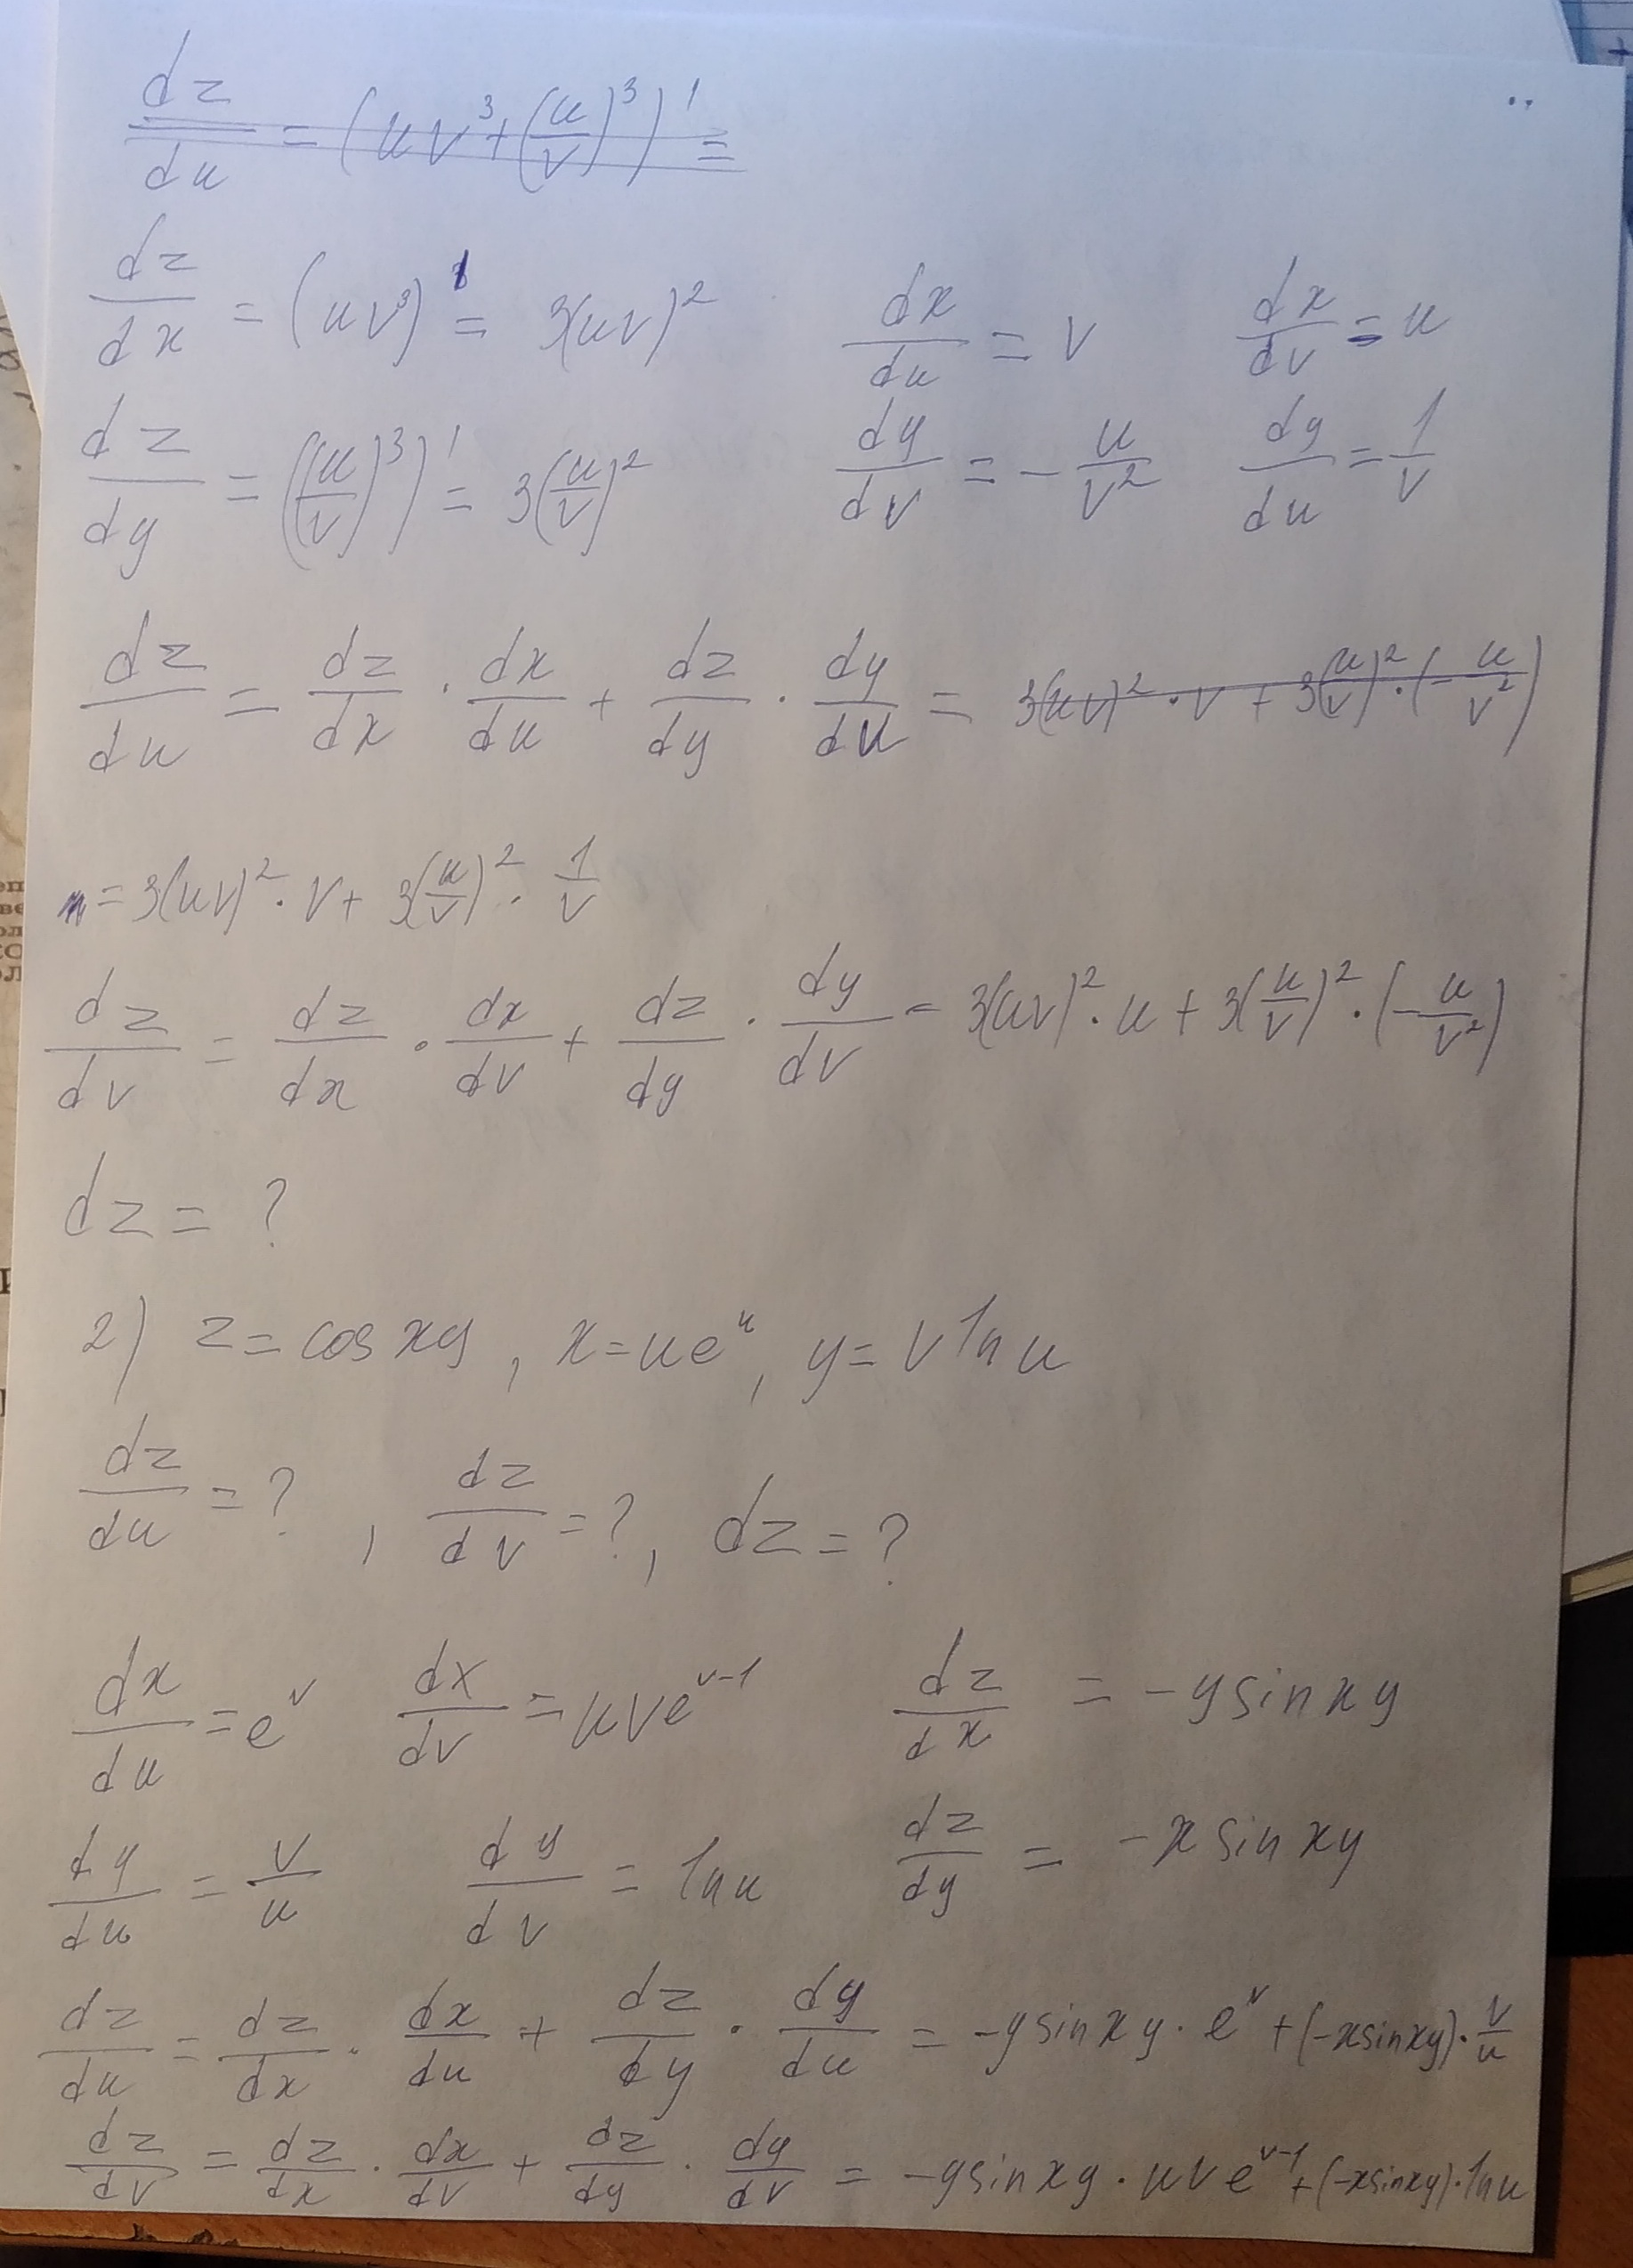 dz/du = (uv³+(u/v)³)' =
dz/dx = (uv³)' = 3(uv)² dx/du = v dx/dv = u
dz/dy = ((u/v)³)' = 3(u/v)² dy/dv = -u/v² dy/du = 1/v
dz/du = dz/dx · dx/du + dz/dy · dy/du = 3(uv)² · v + 3(u/v)² · (-u/v²)
= 3(uv)² · v + 3(u/v)² · 1/v
dz/dv = dz/dx · dx/dv + dz/dy · dy/dv = 3(uv)² · u + 3(u/v)² · (-u/v²)
dz = ?
2) z = cos xy, x = ue^u, y = v ln u
dz/du = ?, dz/dv = ?, dz = ?
dx/du = e^v dx/dv = uve^(v-1) dz/dx = -y sin xy
dy/du = v/u dy/dv = ln u dz/dy = -x sin xy
dz/du = dz/dx · dx/du + dz/dy · dy/du = -y sin xy · e^v + (-x sin xy) · v/u
dz/dv = dz/dx · dx/dv + dz/dy · dy/dv = -y sin xy · uve^(v-1) + (-x sin xy) · ln u